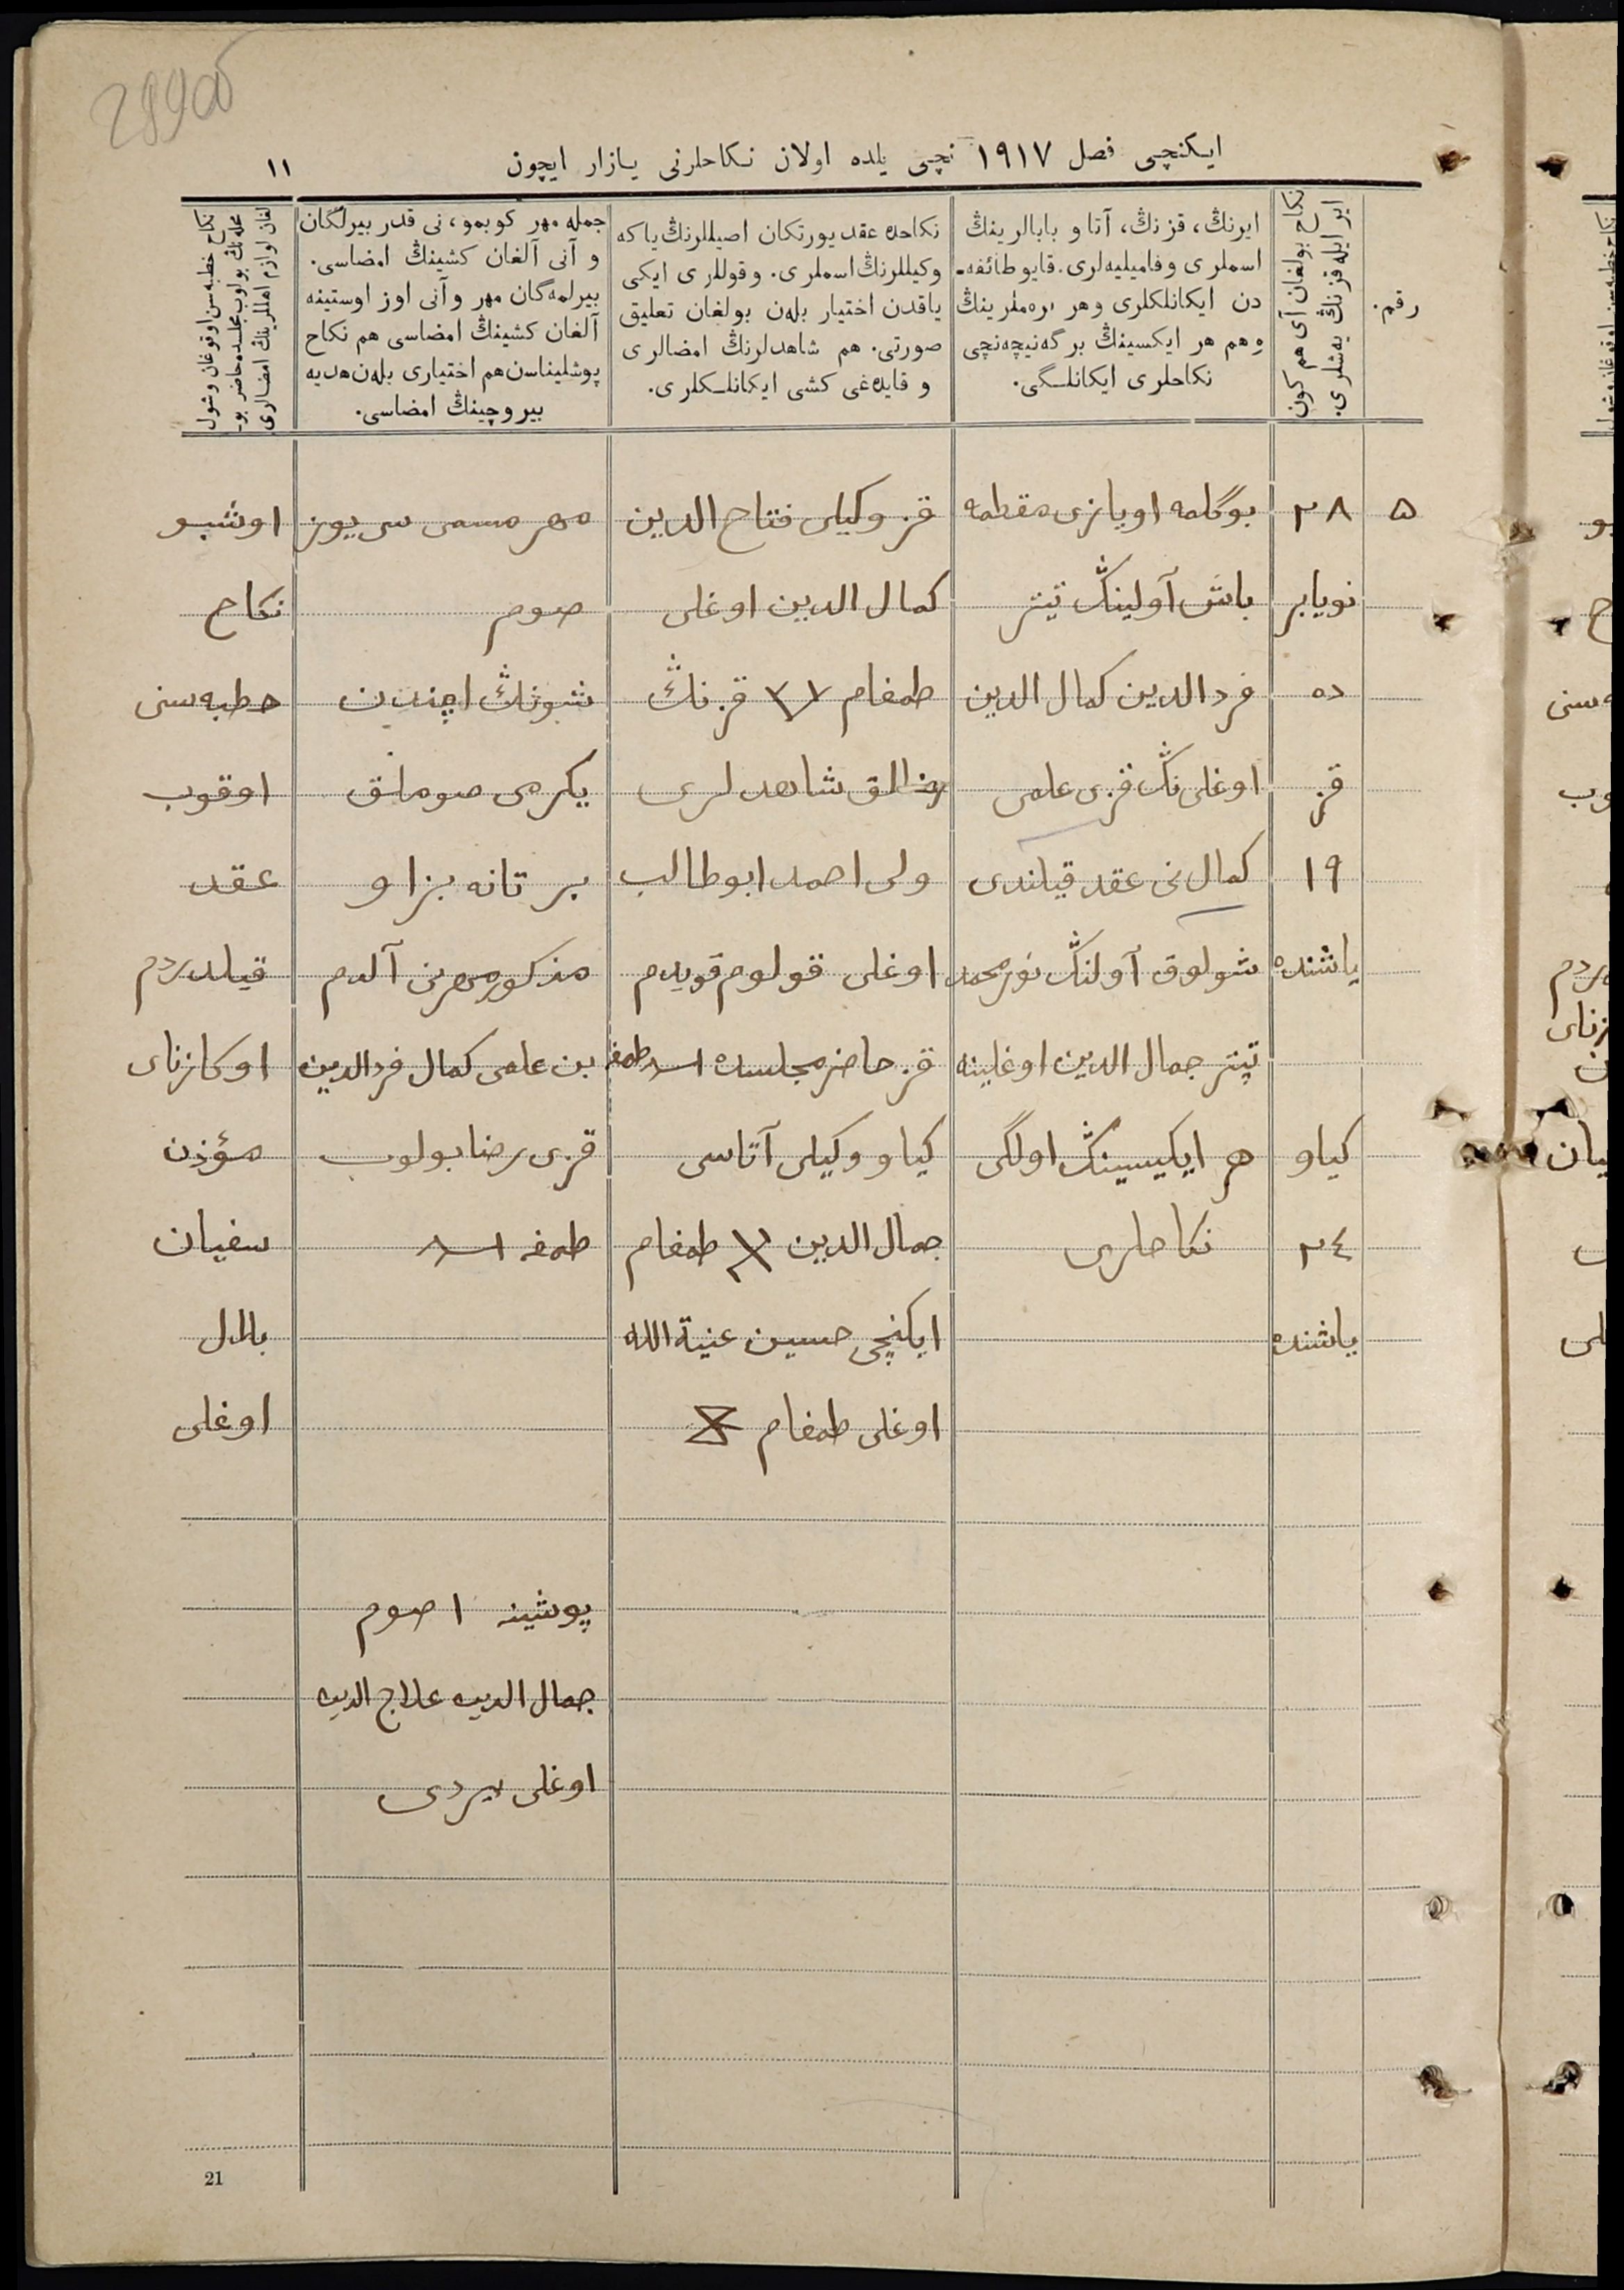 ایکنچی فصل ١٩١٧ نچی یلده اولان نکاحلرنی یازار ایچون
١١
رقم.
نکاح بولغان آی هم کون
ایر ایله قزنڭ یه‌شلری.
ایرنڭ، قزنڭ، آتا و بابالرینڭ
اسملری وفامیلیه‌لری. قایو طائفه‌-
دن ایکانلکلری وهر برملرینڭ
وهم هر ایکسینڭ برگه نیچه‌نچی
نکاحلری ایکانلگی.
نکاحده عقد یورتکان اصیللرنڭ یاکه
وکیللرنڭ اسملری. وقوللری ایکی
یاقدن اختیار بله‌ن بولغان تعلیق
صورتی. هم شاهدلرنڭ امضالری
و قایده‌غی کشی ایکانلکلری.
جمله مهر کوبمو، نی قدر بیرلگان
و آنی آلغان کشینڭ امضاسی.
بیرلمه‌گان مهر وآنی اوز اوستینه
آلغان کشینڭ امضاسی هم نکاح
پوشلیناسن هم اختیاری بله‌ن هدیه
بیروچینڭ امضاسی.
نکاح خطبه‌سن اوقوغان وشول
محله‌نڭ بولوب مجلسده حاضر بو-
لغان اوازم اهللرینڭ امضالری
٥
٢٨
نویابر
ده
قز
١٩
یاشنده
کیاو
٢٤
یاشنده
بوگلمه اویازی مقطمه
باش آولینڭ تیتر
فردالدین کمال الدین
اوغلی نڭ قزی علمی
کمال نی عقد قیلندی
شولوق آولنڭ نورمحمد
تپتر جمال الدین اوغلینه
هر ایکیسینڭ اولگی
نکاحلری
قز وکیلی فتاح الدین
کمال الدین اوغلی
طمغام قز نڭ
رضالق شاهدلری
ولی احمد ابوطالب
اوغلی قولوم قویدم
قز حاضر مجلسده طمغه
کیاو وکیلی آتاسی
جمال الدین طمغام
ایکنچی حسین عنیةالله
اوغلی طمغام
مهر مسمی سی یوز
صوم
شبونڭ اچندن
یکرمی صوملق
بر تانه بزاو
مذکور مهرنی آلدم
بن علمی کمال فردالدین
قزی رضا بولوب
طمغه
پوشینه ١ صوم
جمال الدین علاج الدین
اوغلی بیردی
اوشبو
نکاح
خطبه‌سنی
اوقوب
عقد
قیلدردم
اوکازنای
مؤذن
سفیان
بلال
اوغلی
21